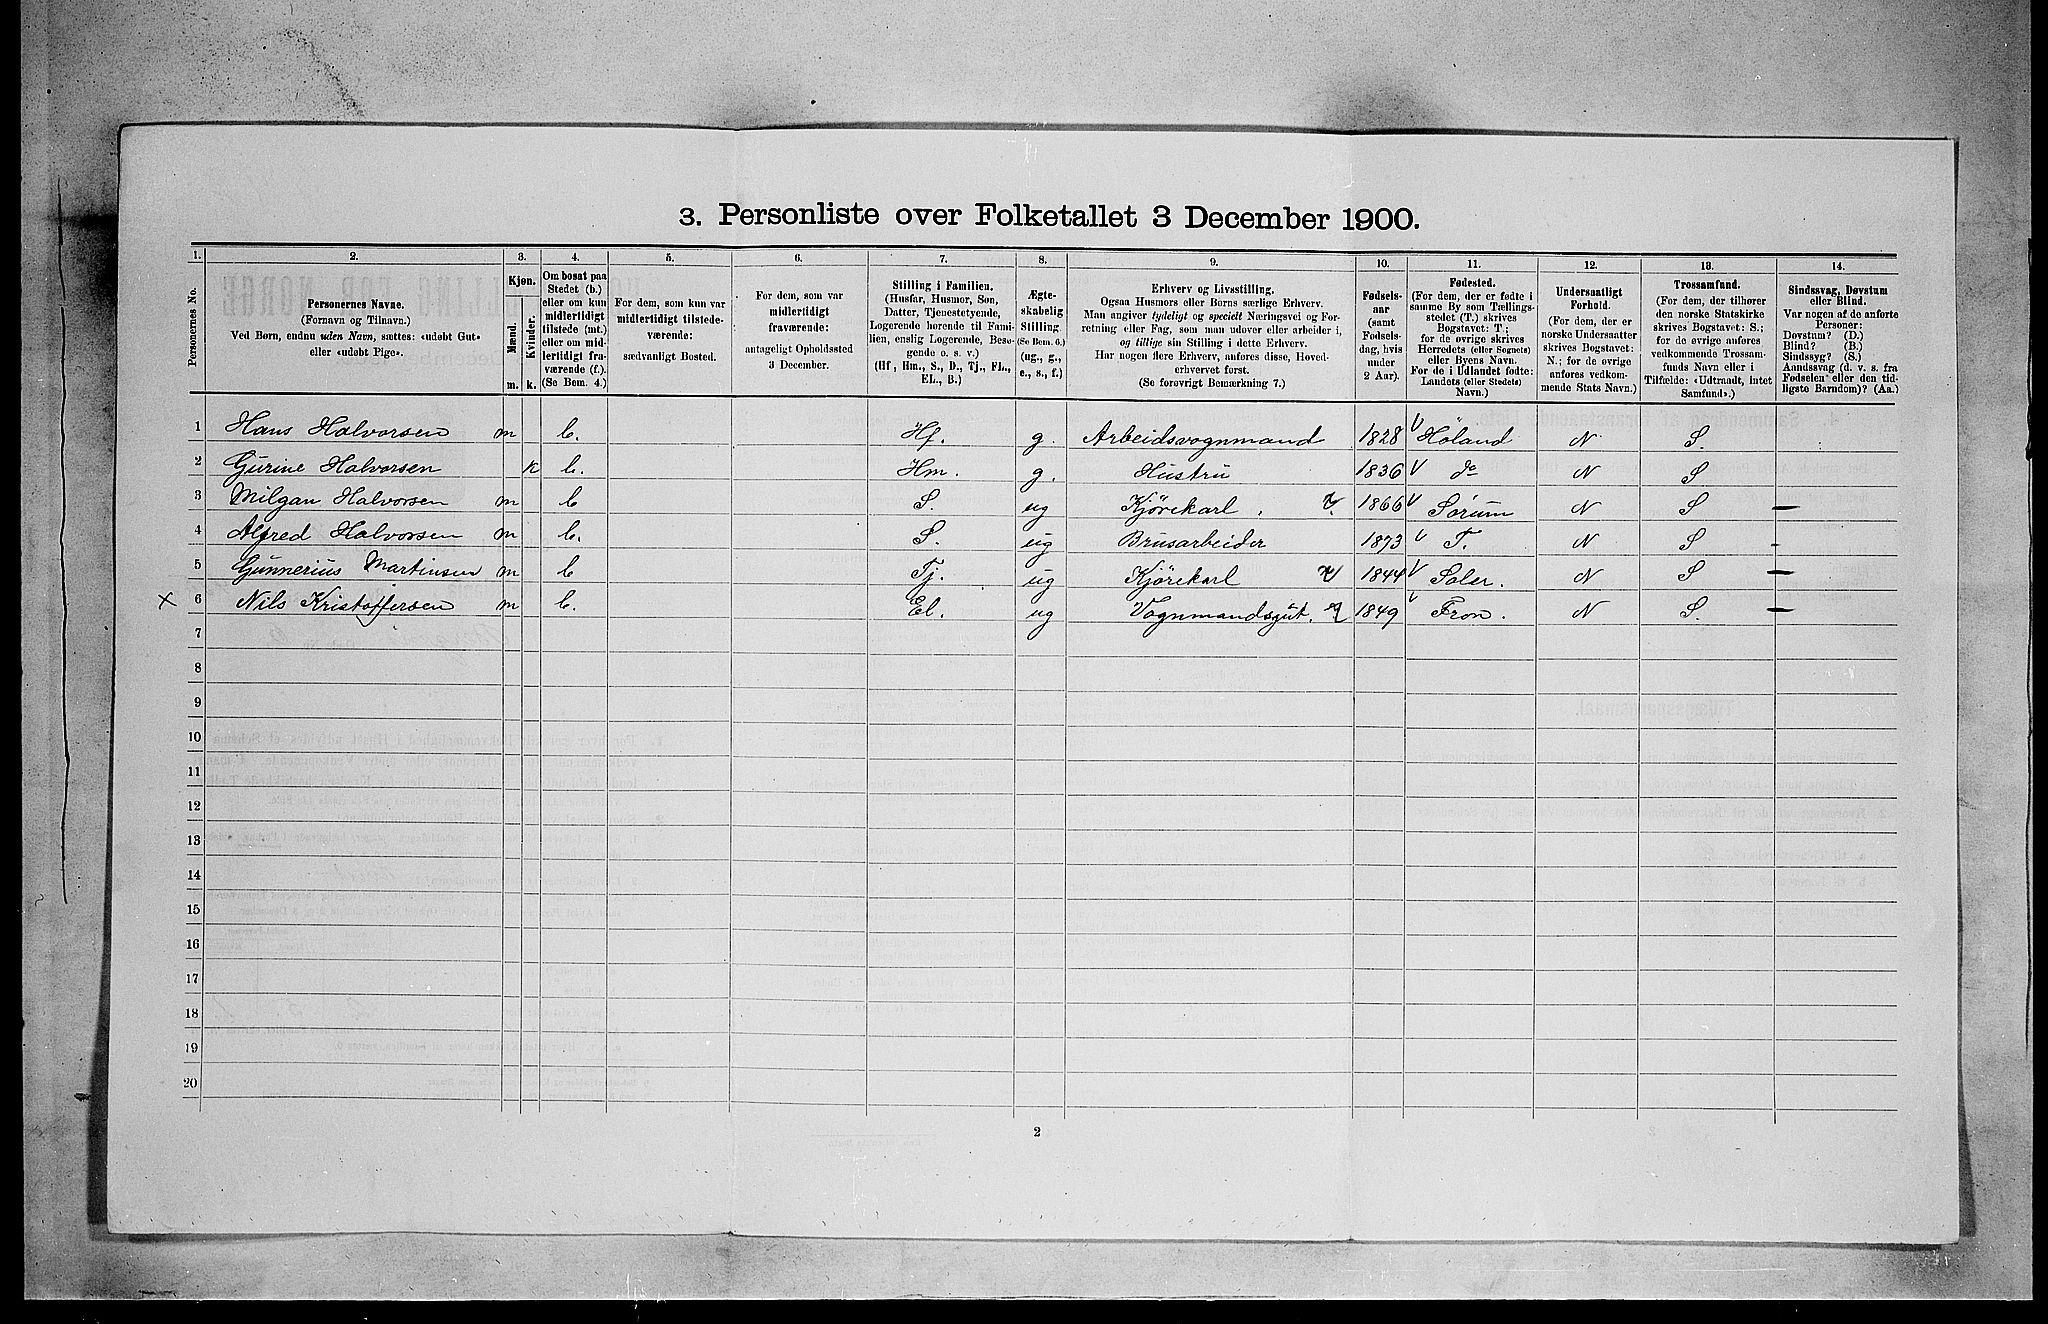 3. Personliste over Folketallet 3 December 1900.
1. 2. 3. 4. 5. 6. 7. 8. 9. 10. 11. 12. 13. 14.
Personernes No.
Personernes Navne.
(Fornavn og Tilnavn.)
Ved Børn, endnu uden Navn, sættes: «udøbt Gut»
eller «udøbt Pige».
Kjøn.
Mænd.
Kvinder.
m. k.
Om bosat paa
Stedet (b.)
eller om kun
midlertidigt
tilstede (mt.)
eller om mid-
lertidigt fra-
værende (f.).
(Se Bem. 4.)
For dem, som kun var
midlertidigt tilstede-
værende:
sædvanligt Bosted.
For dem, som var
midlertidigt
fraværende:
antageligt Opholdssted
3 December.
Stilling i Familien.
(Husfar, Husmor, Søn,
Datter, Tjenestetyende,
Logerende hørende til Fami-
lien, enslig Logerende, Besø-
gende o. s. v.)
(Hf, Hm., S., D., Tj., FL.,
EL., B.)
Ægte-
skabelig
Stilling.
(Se Bem. 6.)
(ug., g.,
e., s., f.)
Erhverv og Livsstilling.
Ogsaa Husmors eller Børns særlige Erhverv.
Man angiver tydeligt og specielt Næringsvei og For-
retning eller Fag, som man udøver eller arbeider i,
og tillige sin Stilling i dette Erhverv.
Har nogen flere Erhverv, anføres disse, Hoved-
erhvervet først.
(Se forøvrigt Bemærkning 7.)
Fødsels-
aar
(samt
Fødsels-
dag, hvis
under
2 Aar).
Fødested.
(For dem, der er fødte i
samme By som Tællings-
stedet (T.) skrives
Bogstavet: T;
for de øvrige skrives
Herredets (eller Sognets)
eller Byens Navn.
For de i Udlandet fødte:
Landets (eller Stedets)
Navn.)
Undersaatligt
Forhold.
(For dem, der er
norske Undersaatter
skrives Bogstavet:
N.; for de øvrige
anføres vedkom-
mende Stats Navn.)
Trossamfund.
(For dem, der tilhører
den norske Statskirke
skrives Bogstavet: S.;
for de øvrige anføres
vedkommende Trossam-
funds Navn eller i
Tilfælde: «Udtraadt, intet
Samfund».)
Sindssvag, Døvstum
eller Blind.
Var nogen af de anførte
Personer:
Døvstum? (D.)
Blind? (B.)
Sindssyg? (S.)
Aandssvag (d. v. s. fra
Fødselen eller den tid-
ligste Barndom)? (Aa.)
1 Hans Halvorsen m b. Hf. g. Arbeidsvognmand 1828 Høland N S.
2 Gurine Halvorsen k b. Hm. g. Hustru 1836 do N S
3 Milgan Halvorsen m b S. ug Kjørekarl 1866 Sørum N S —
4 Alfred Halvorsen m b. S. ug Brusarbeider 1873 T. N S -
5 Gunnerius Martinsen m b Tj. ug Kjørekarl 1844 Soler. N S —
x 6 Nils Kristoffersen m b. El. ug Vognmandsgut. 1849 Fron. N S. —
7
8
9
10
11
12
13
14
15
16
17
18
19
20
2